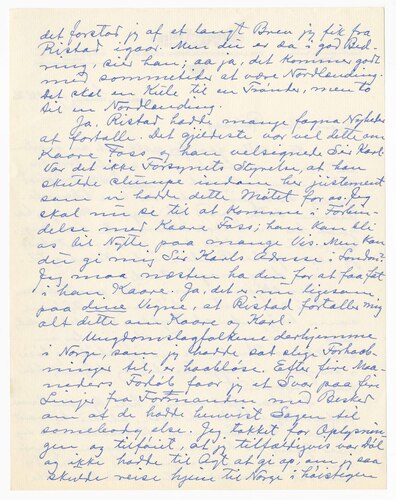 det forstod jeg af et langt Brev jeg fik fra
Ristad igaar. Men du er saa i god Bed-
ring, sier han; aa ja, det kommer godt
med sommetider at være Nordlending.
Det skal en Kule til en Trønder, men to
til en Nordlending.
Ja, Ristad hadde mange fagna Nyheder
at fortælle. Det gjildeste var vel dette om
Kaare Foss og han velsignede Sir Karl.
Var det ikke Forsynets Styrelse, at han
skulde slumpe indom her justement
som vi hadde dette Møtet for os. Jeg
skal nu se til at komme i Forbin-
delse med Kaare Foss; han kan bli
os til Nytte paa mange Vis. Men kan
du gi mig Sir Karls Adresse i London?
Jeg maa næsten ha den for at faa fat
i han Kaare. Ja, det er nu ligesom
paa dine Vegne, at Ristad fortæller mig
alt dette om Kaare og Karl.
Ungdomslagfolkene derhjemme
i Norge, som jeg hadde sat slige Forhaab-
ninger til, er haabløse. Efter fire Maa-
neders Forløb faar jeg et Svar paa fire
Linjer fra Formanden med Besked
om at de hadde henvist Sagen til
somebody else. Jeg takket for Oplysnin-
gen og tilføiet, at jeg tilfældigvis var
og ikke hadde til Agt at gi op, om jeg saa
skulde reise hjem til Norge i høistegen